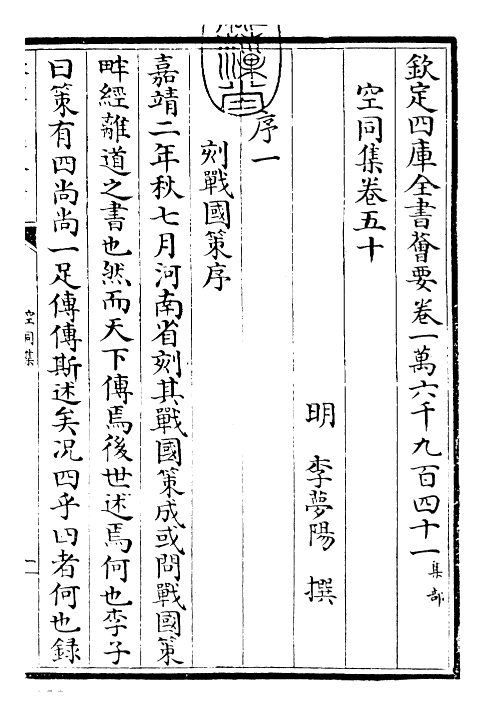 欽定四庫全書薈要卷一萬六千九百四十一集部
空同集卷五十
明李夢陽撰
序一
刻戰國策序
嘉靖二年秋七月河南省刻其戰國策成或問戰國策
畔經離道之書也然而天下傳焉後世述焉何也李子
曰策有四尚尚一足傳傳斯述矣況四乎四者何也錄
空同集
一